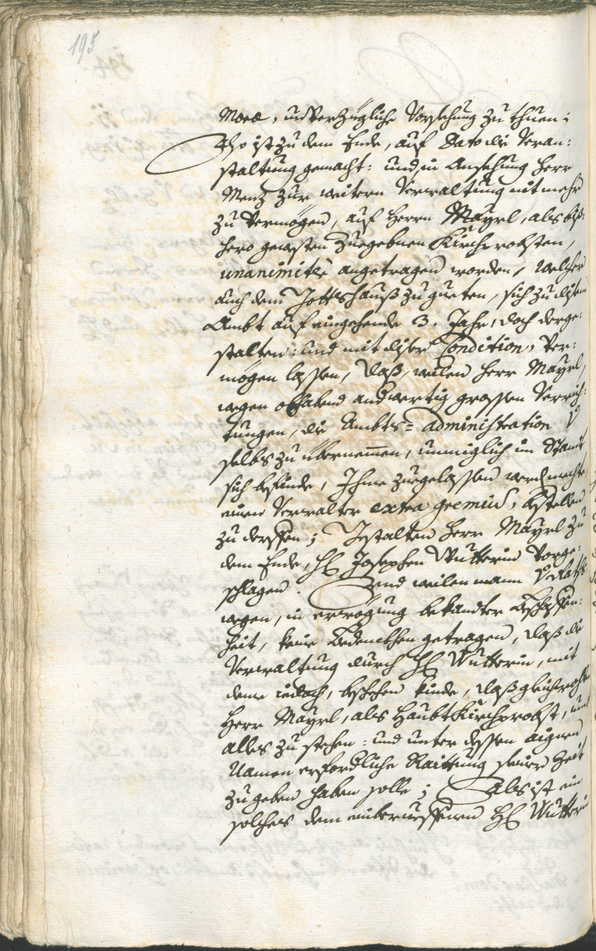 195
More, unverzügliche Vorsehung zu thuen;
Also ist zu dem Ende, auf Dato die Veran:
staltung gemacht: und in Ansehung Herr
Menz zur weitern Verwaltung nit mehr
zu vermögen, auf Herrn Mayrl, als bis
hero gewesten Zuegebnen Kirchprobsten,
unanimiter angetragen worden, welcher
auch dem Gotts Hauß zu gueten, sich zu diesem
Ambt auf eingehende 3. Jahr, doch derge:
stalten: und mit diser Condition, ver:
mögen lassen, daß, weilen Herr Mayrl,
wegen obhabend anderwertig grossen Verrich:
tungen, die Ambts= Administration
selbs zu übernemmen, unmüglich im Stand
sich befinde, Ihme zuegelassen werden mechte
einen Verwalter extra gremium, bestellen
zu derffen; Gestalten Herr Mayrl zu
dem Ende, H: Josephen Wutterin vorge:
schlagen. Und weilen mann
wegen, in erwögung bekandter Beschaffen:
heit, keine Bedenckhen getragen, daß die
Verwaltung durch H: Wutterin, mit
deme iedoch, beschehen künde, daß gleichwohl
Herr Mayrl, als Haubt Kirchprobst, umb
alles zu stehen: und unter dessen aignen
Namen erforderliche Raittung seiner Zeit
zu geben haben solle; Als ist ein
solches dem einberueffenen H: Wutterin